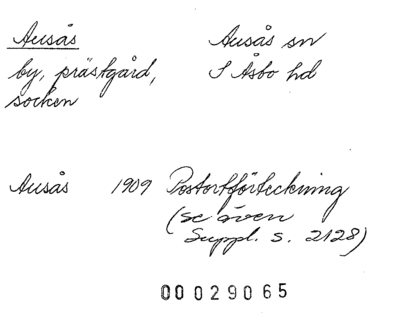 Ausås Ausås sn
by, prästgård, S Åsbo hd
socken
Ausås 1909 Postortförteckning
(se även
Suppl. s. 2128)
00029065